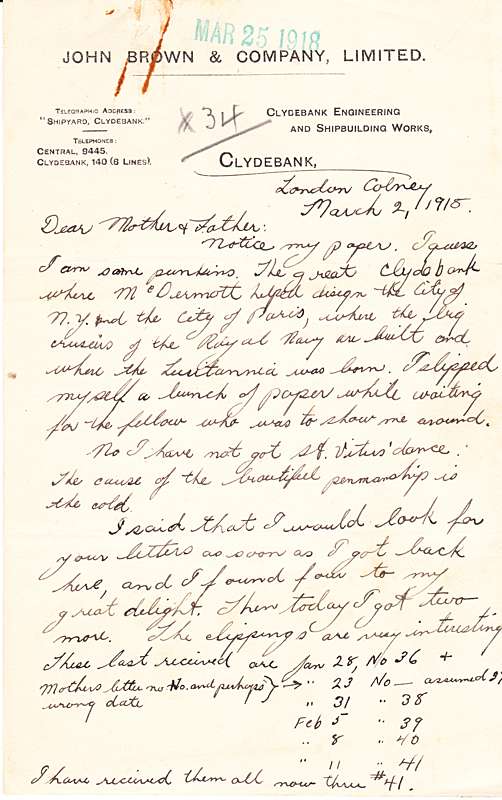 MAR 25 1918
JOHN BROWN & COMPANY, LIMITED.
TELEGRAPHIC ADDRESS:
"SHIPYARD, CLYDEBANK."
TELEPHONES:
CENTRAL, 9445.
CLYDEBANK, 140 (6 LINES).
x34
CLYDEBANK ENGINEERING
AND SHIPBUILDING WORKS,
CLYDEBANK,
London Colney
March 2, 1918.
Dear Mother & Father:
Notice my paper. I guess
I am some punkins. The great Clydebank
where McDermott helped disign the City of
N.Y. and the City of Paris, where the big
crusers of the Royal Navy are built and
where the Lusitannia was born. I slipped
myself a bunch of paper while waiting
for the fellow who was to show me around.
No I have not got St. Vitus' dance.
The cause of the beautiful penmanship is
the cold.
I said that I would look for
your letters as soon as I got back
here, and I found four to my
great delight. Then today I got two
more. The clippings are very interesting
These last received are Jan 28, No 36 +
Mothers letter no No. and perhaps } → " 23 No — assumed 37
wrong date " 31 " 38
Feb 5 " 39
" 8 " 40
" 11 " 41
I have received them all now thru #41.